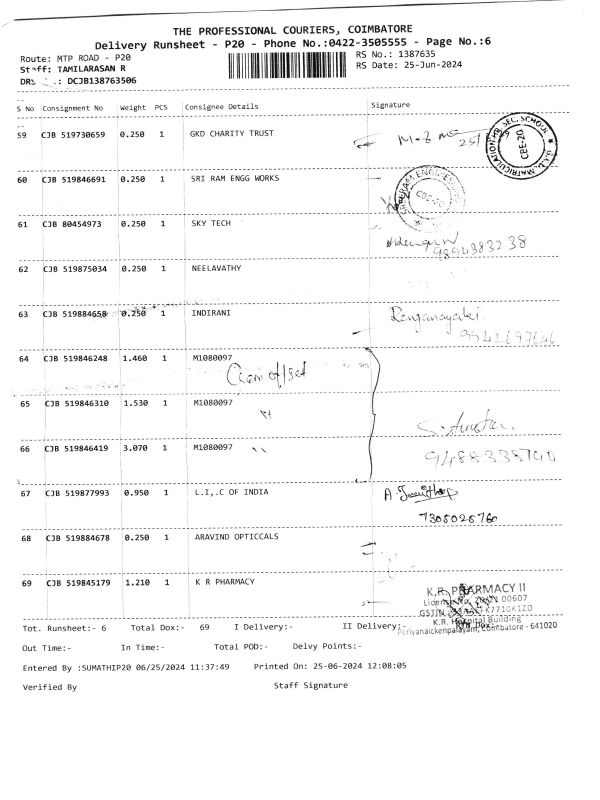 THE PROFESSIONAL COURIERS, COIMBATORE
Delivery Runsheet - P20 - Phone No.:0422-3505555 - Page No.:6
Route: MTP ROAD - P20 RS No.: 1387635
Staff: TAMILARASAN R RS Date: 25-Jun-2024
DRS .: DCJB138763506
S No Consignment No Weight PCS Consignee Details Signature
59 CJB 519730659 0.250 1 GKD CHARITY TRUST
MATRICULATION HR. SEC. SCHOOL
CBE-20
60 CJB 519846691 0.250 1 SRI RAM ENGG WORKS
CBE-20
61 CJB 80454973 0.250 1 SKY TECH
9894383238
62 CJB 519875034 0.250 1 NEELAVATHY
63 CJB 519884658 0.250 1 INDIRANI Renganayaki
64 CJB 519846248 1.460 1 M1080097
65 CJB 519846310 1.530 1 M1080097
66 CJB 519846419 3.070 1 M1080097
9488338740
67 CJB 519877993 0.950 1 L.I,.C OF INDIA
7305026760
68 CJB 519884678 0.250 1 ARAVIND OPTICCALS
69 CJB 519845179 1.210 1 K R PHARMACY
K.R. PHARMACY II
K.R. Hospital Building
Periyanaickenpalayam, Coimbatore - 641020
Tot. Runsheet:- 6 Total Dox:- 69 I Delivery:- II Delivery:-
Out Time:- In Time:- Total POD:- Delvy Points:-
Entered By :SUMATHIP20 06/25/2024 11:37:49 Printed On: 25-06-2024 12:08:05
Verified By Staff Signature